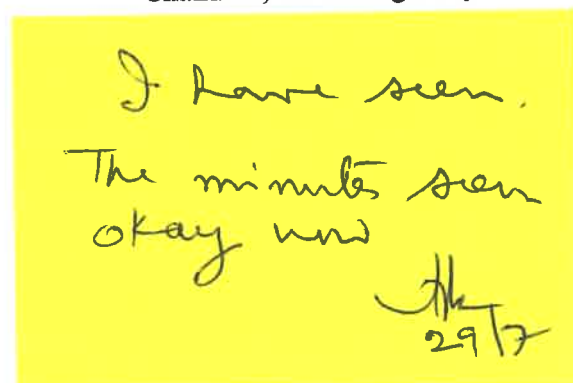 I have seen.
The minutes seem
okay now
29/7